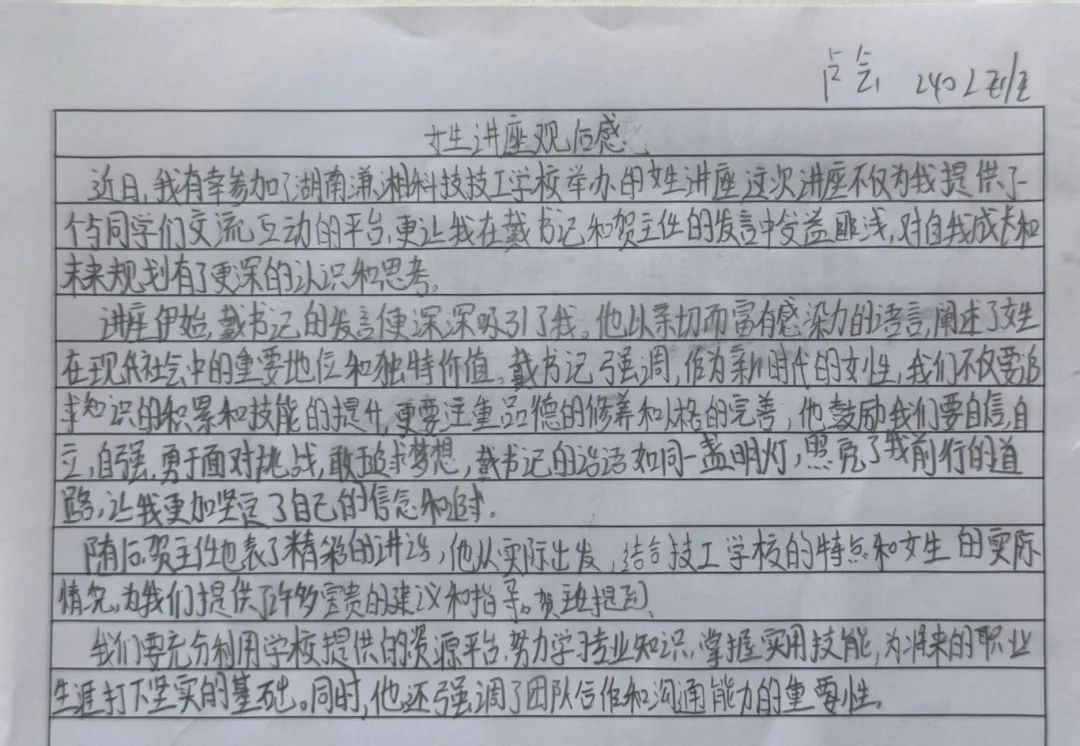 卢会 2402班
女生讲座观后感
近日,我有幸参加了湖南潇湘科技技工学校举办的女生讲座这次讲座不仅为我提供了一
个与同学们交流互动的平台,更让我在戴书记和贺主任的发言中受益匪浅,对自我成长和
未来规划有了更深的认识和思考。
讲座伊始,戴书记的发言便深深吸引了我。他以亲切而富有感染力的语言,阐述了女生
在现代社会中的重要地位和独特价值。戴书记强调,作为新时代的女性,我们不仅要追
求知识的积累和技能的提升,更要注重品德的修养和人格的完善,他鼓励我们要自信,自
立,自强,勇于面对挑战,敢于追求梦想,戴书记的话语如同一盏明灯,照亮了我前行的道
路,让我更加坚定了自己的信念和追求。
随后,贺主任也表了精彩的讲话,他从实际出发,结合技工学校的特点和女生的实际
情况,为我们提供了许多宝贵的建议和指导。贺主任提到,
我们要充分利用学校提供的资源平台,努力学习专业知识,掌握实用技能,为将来的职业
生涯打下坚实的基础。同时,他还强调了团队合作和沟通能力的重要性,